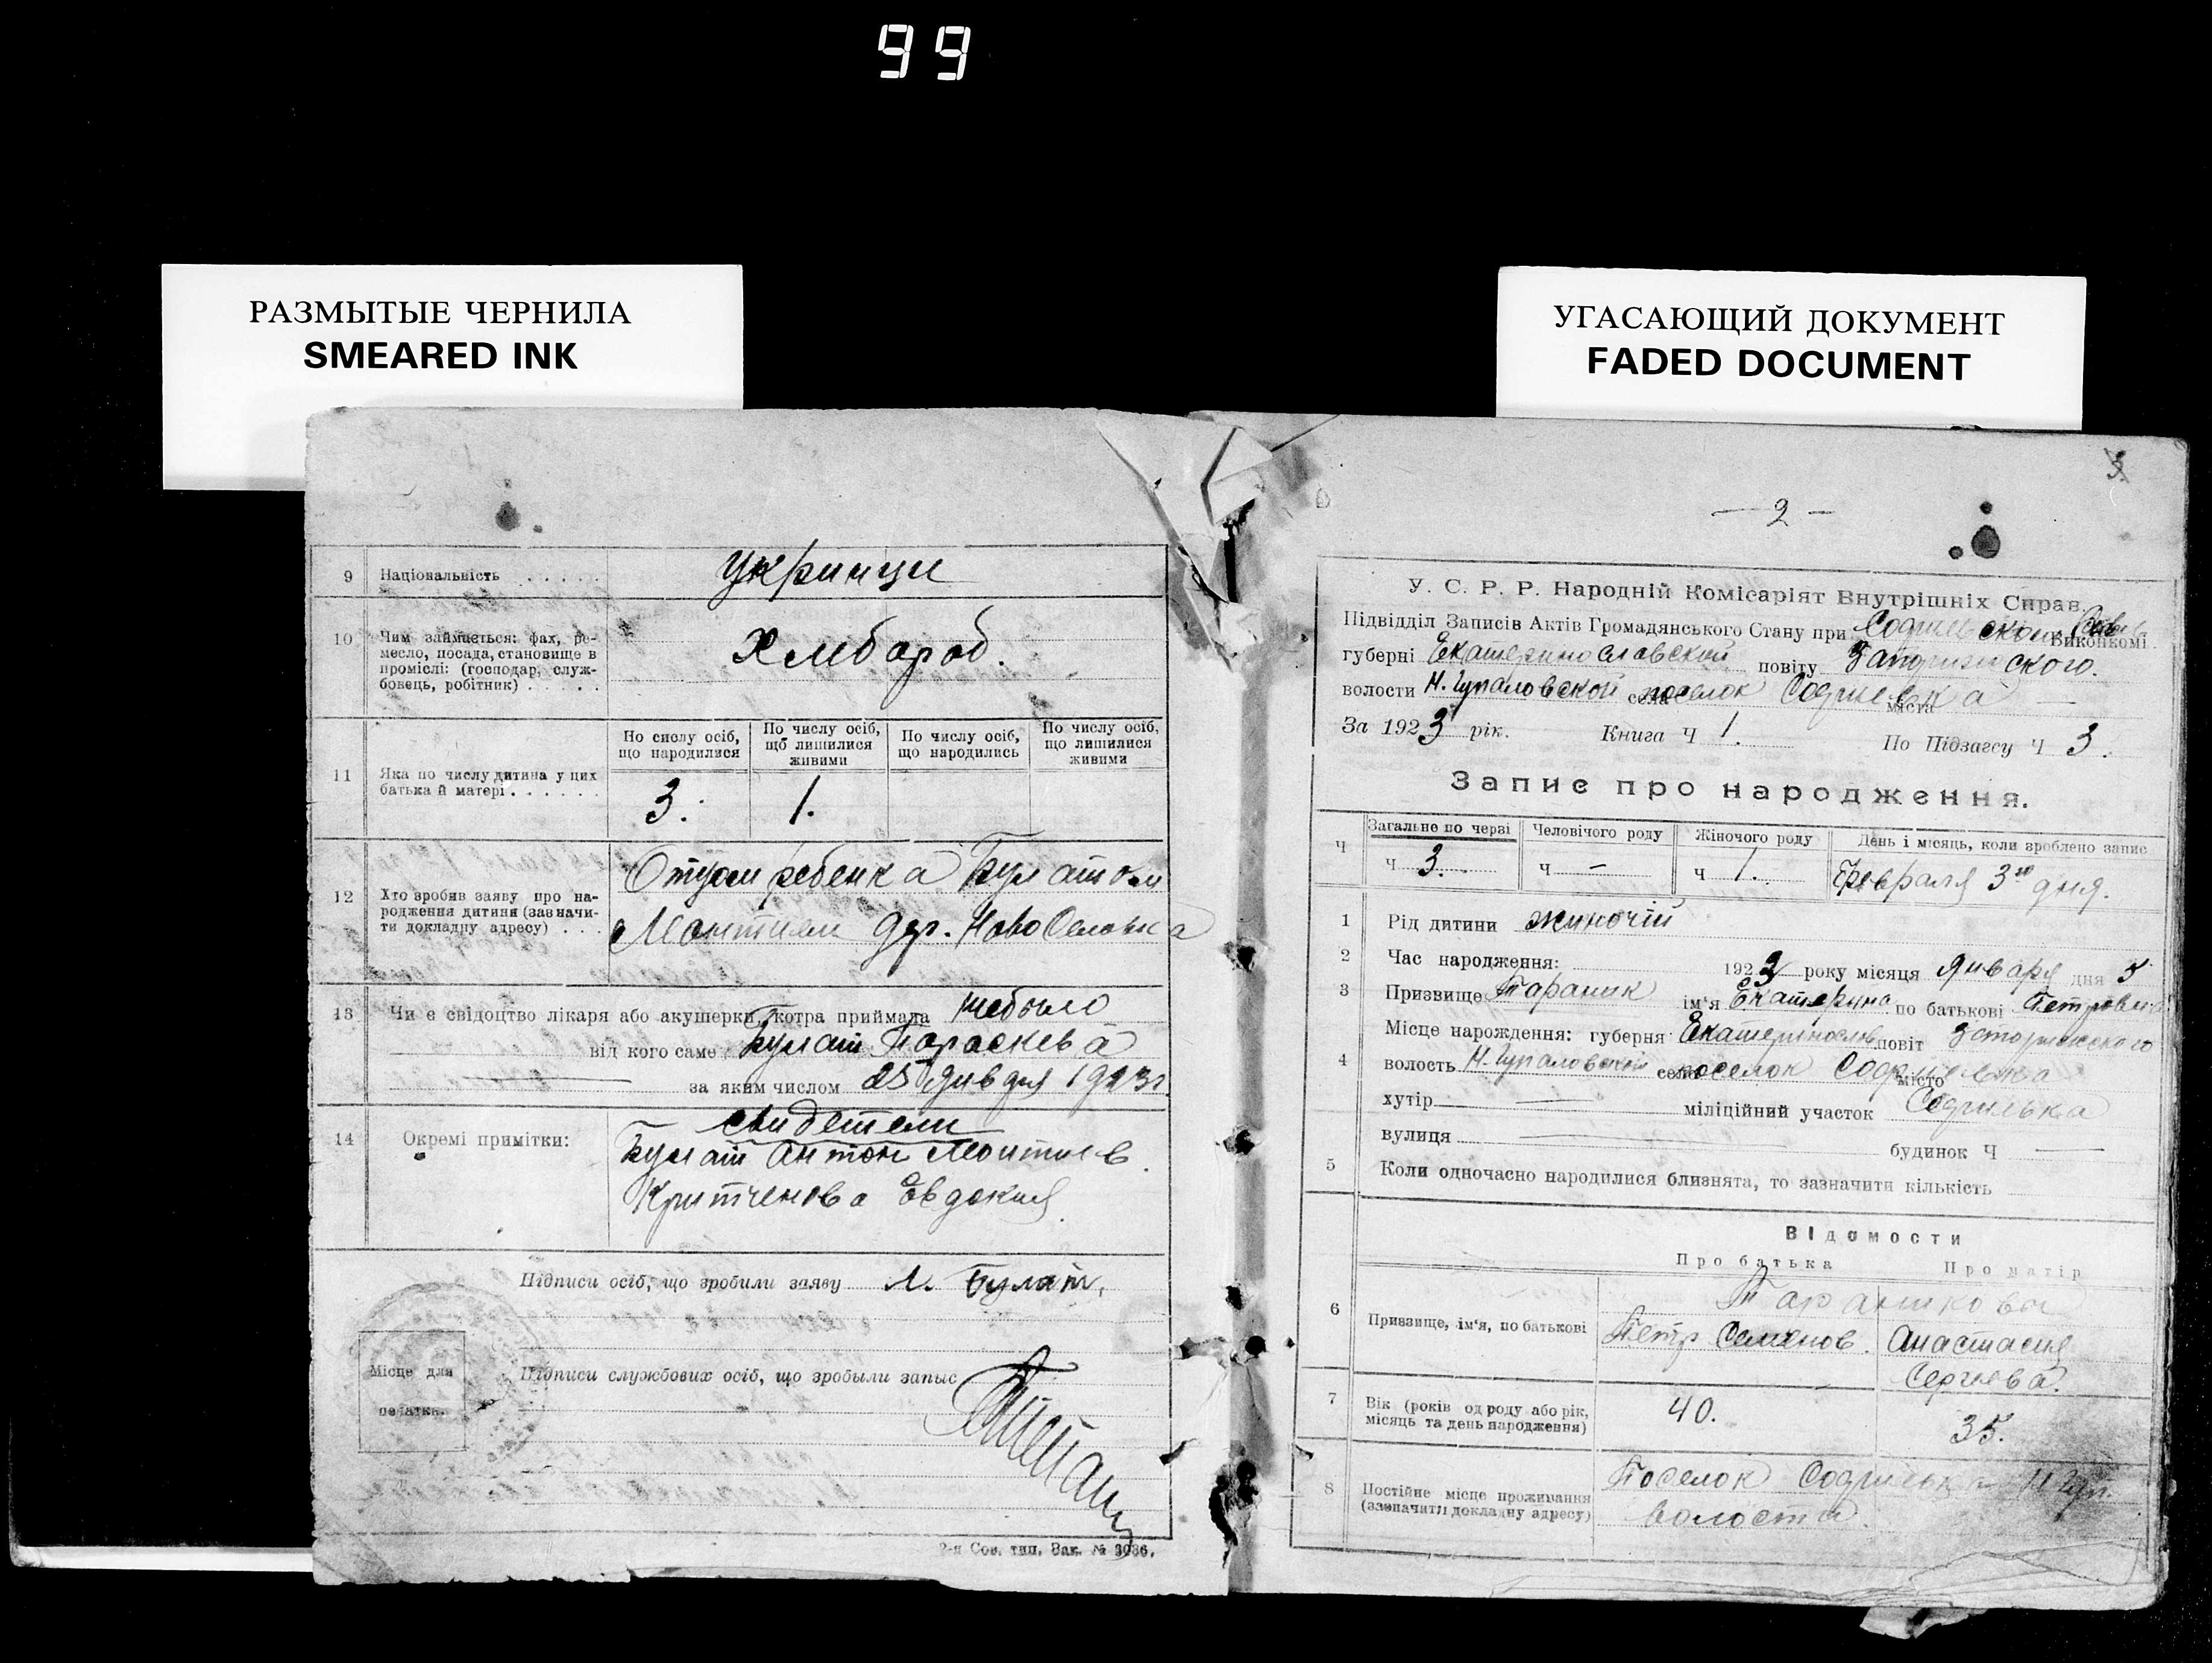 99
РАЗМЫТЫЕ ЧЕРНИЛА
SMEARED INK
УГАСАЮЩИЙ ДОКУМЕНТ
FADED DOCUMENT
9 Національність . . . . .
Укринци
10 Чим займається: фах, ре-
месло, посада, становище в
промислі: (господар, служ-
бовець, робітник) . . . . .
Хлебороб.
11 Яка по числу дитина у цих
батька й матері . . . . . .
По числу осіб,
що народилися
По числу осіб,
що лишилися
живими
По числу осіб,
що народились
По числу осіб,
що лишилися
живими
3. 1.
12 Хто зробив заяву про на-
родження дитини (зазначи-
ти докладну адресу) . . .
Отцом ребенка Булатом
дер. Ново Селовка
13 Чи є свідоцтво лікаря або акушерки, котра приймала небыло
від кого саме Булат Параскева
за яким числом 25 января 1923 г
14 Окремі примітки:
свидетели
Булат Антон
Евдокия
Підписи осіб, що зробили заяву Л. Булат.
Місце для
печатки.
Підписи службових осіб, що зробыли запыс
2-я Сов. тип. Зак. № 3036.
3
— 2 —
У. С. Р. Р. Народній Комісаріят Внутрішніх Справ.
Підвідділ Записів Актів Громадянського Стану при Виконкомі
губерні Екатеринославской повіту Запорижского.
волости Н. Гупаловской села поселок міста —
За 1923 рік. Книга Ч 1. По Підзагсу Ч 3.
Запис про народження.
Ч Загальне по черзі Человічого роду Жіночого роду День і місяць, коли зроблено запис
Ч 3. Ч — Ч 1. Февраля 3го дня.
1 Рід дитини жиночій
2 Час народження: 1923 року місяця Января дня 5
3 Призвище Тараник ім'я Екатерина по батькові Петровна
4 Місце нарождення: губерня Екатеринослав. повіт Запорижского
волость Н. Гупаловской села поселок місто
хутір — міліційний участок
вулиця — будинок Ч —
5 Коли одночасно народилися близнята, то зазначити кількість
Відомости
Про батька Про матір
6 Призвище, ім'я, по батькові
Тараникова
Петр Семенов. Анастасия
Сергеева.
7 Вік (років од роду або рік,
місяць та день народження)
40. 35.
8 Постійне місце проживання
(зазначити докладну адресу)
Поселок Н Гуп.
волости.